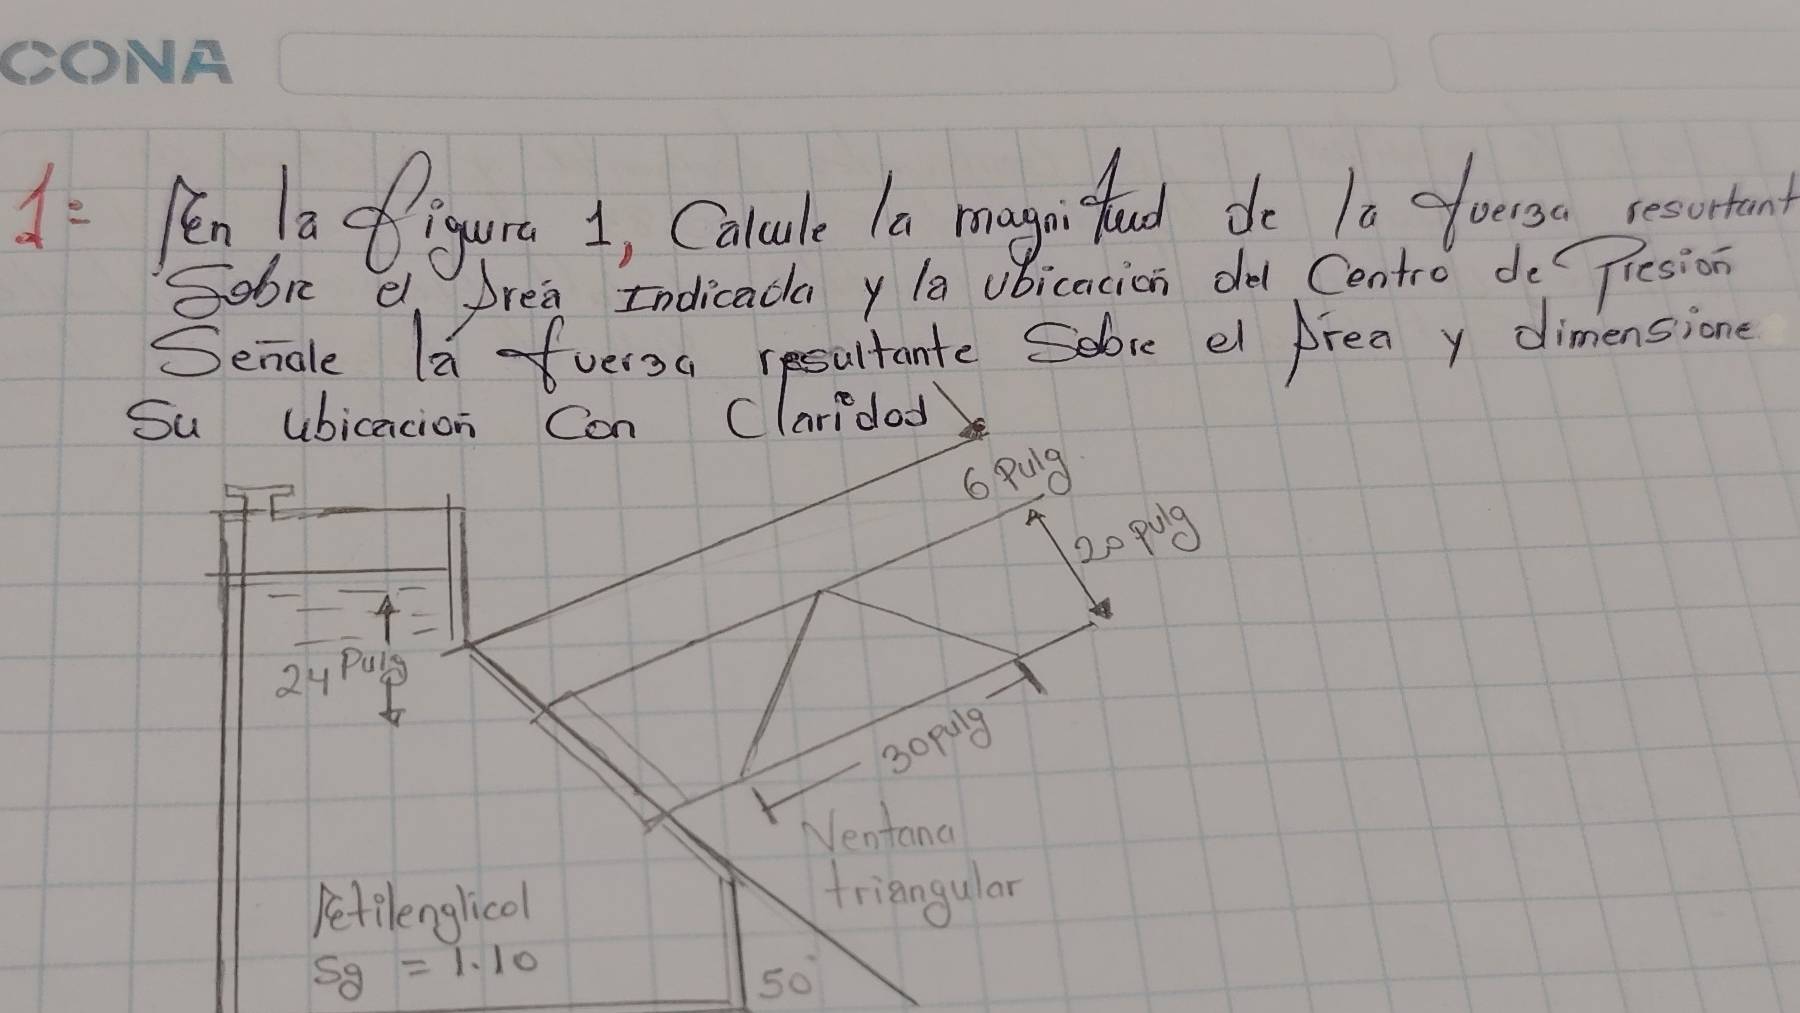 CONA
1= En la figura 1, Calcule la magnitud de la fuerza resurtant
Sobre el Área Indicada y la ubicación del Centro de Presión
Señale la fuerza resultante Sobre el Área y dimensione
Su ubicación Con Claridad
6 Pulg
20 pulg
24 Pulg
30 pulg
Ventana
triangular
Etilenglicol
Sg = 1.10
50°